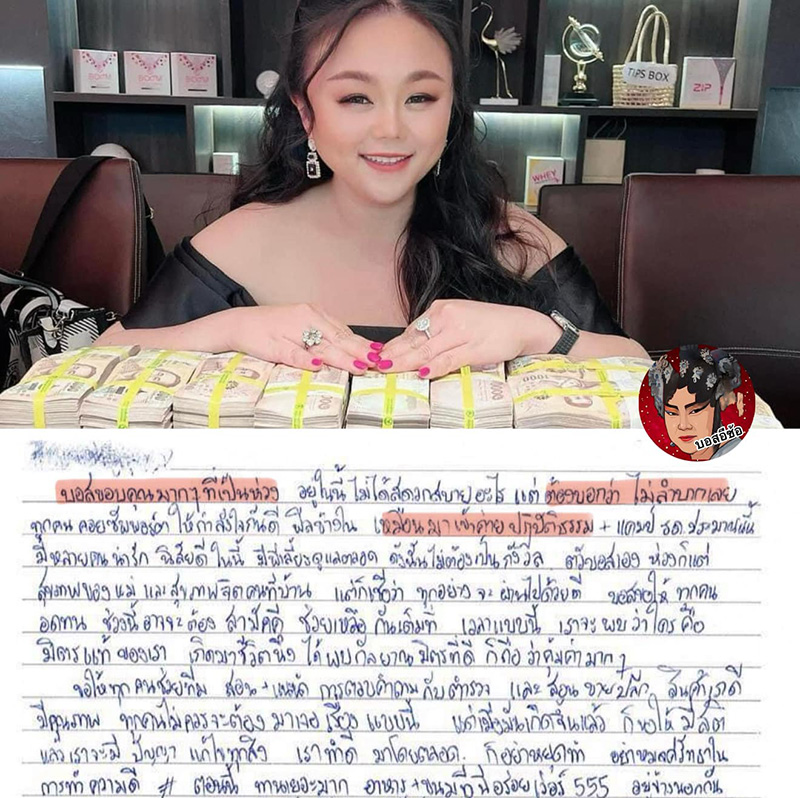 BOOM
BOOM
BOOM
TIPS BOX
ZIP
WHEY
1000
บอสอีซ้อ
บอสขอบคุณมากๆ ที่เป็นห่วง อยู่ในนี้ ไม่ได้สะดวกสบายอะไร แต่ ต้องบอกว่า ไม่ลำบากเลย
ทุกคน คอยซัพพอร์ต ให้กำลังใจกันดี ฟีลข้างใน เหมือนมาเข้าค่ายปฏิบัติธรรม + แคมป์ รด. ประมาณนั้น
มีหลายคน น่ารัก นิสัยดี ในนี้ มีพี่เลี้ยงดูแลตลอด ดังนั้นไม่ต้องเป็นกังวล ตัวบอสเอง ห่วงก็แต่
สุขภาพของแม่ และสุขภาพจิตคนที่บ้าน แต่ก็เชื่อว่า ทุกอย่างจะผ่านไปด้วยดี บอสขอให้ ทุกคน
อดทน ช่วงนี้อาจจะต้อง สามัคคี ช่วยเหลือ กันเต็มที่ เวลาแบบนี้ เราจะพบว่าใครคือ
มิตรแท้ ของเรา เกิดมาชีวิตนึง ได้พบกัลยาณมิตรที่ดี ก็ถือว่าคุ้มค่ามากๆ
ขอให้ทุกคนช่วยทีม สอน + แนะนำ การตอบคำถามกับตำรวจ และสอนขายปลีก สินค้าเราดี
มีคุณภาพ ทุกคนไม่ควรจะต้องมาเจอเรื่องแบบนี้ แต่เมื่อมันเกิดขึ้นแล้ว ก็ขอให้มีสติ
แล้วเราจะมี ปัญญา แก้ไขทุกสิ่ง เราทำดี มาโดยตลอด. ก็อย่าหยุดทำ อย่าหมดศรัทธาใน
การทำความดี # ตอนนี้ ทานเยอะมาก อาหาร + ขนมที่นี่อร่อยเว่อร์ 555 อยู่ข้างนอกกัน